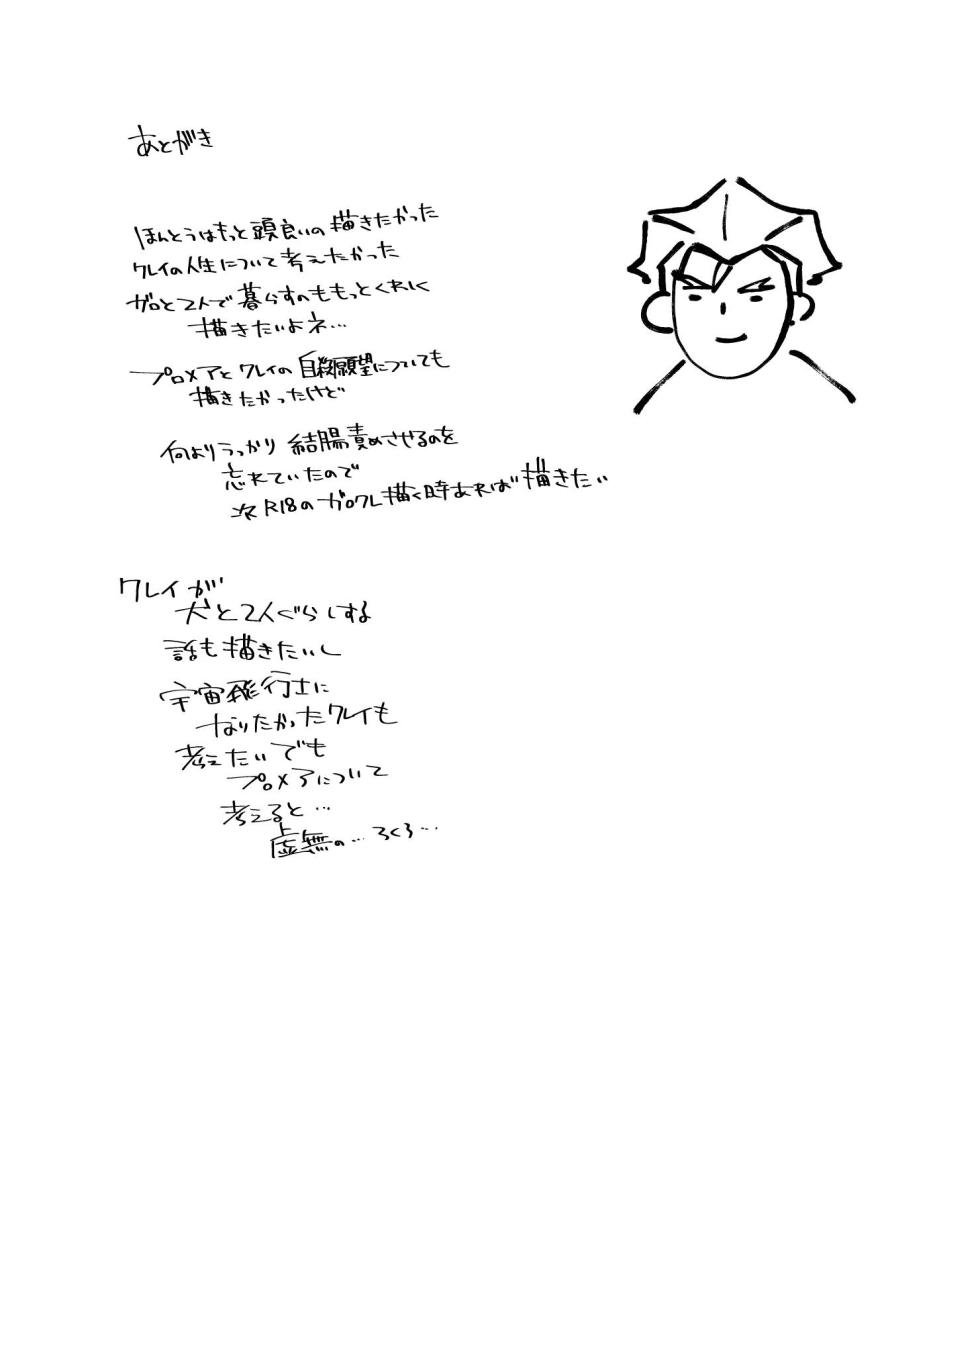 あとがき
ほんとうはもっと頭良いの描きたかった
クレイの人生について考えたかった
ガロと2人で暮らすのももっとくわしく
描きたいよネ…
プロメアとクレイの自殺願望についても
描きたかったけど
何よりうっかり結腸責めさせるのを
忘れていたので
次R18のガロクレ描く時あれば描きたい
クレイが
犬と2人ぐらしする
話も描きたいし
宇宙飛行士に
なりたかったクレイも
考えたいでも
プロメアについて
考えると…
虚無の…ろくろ…